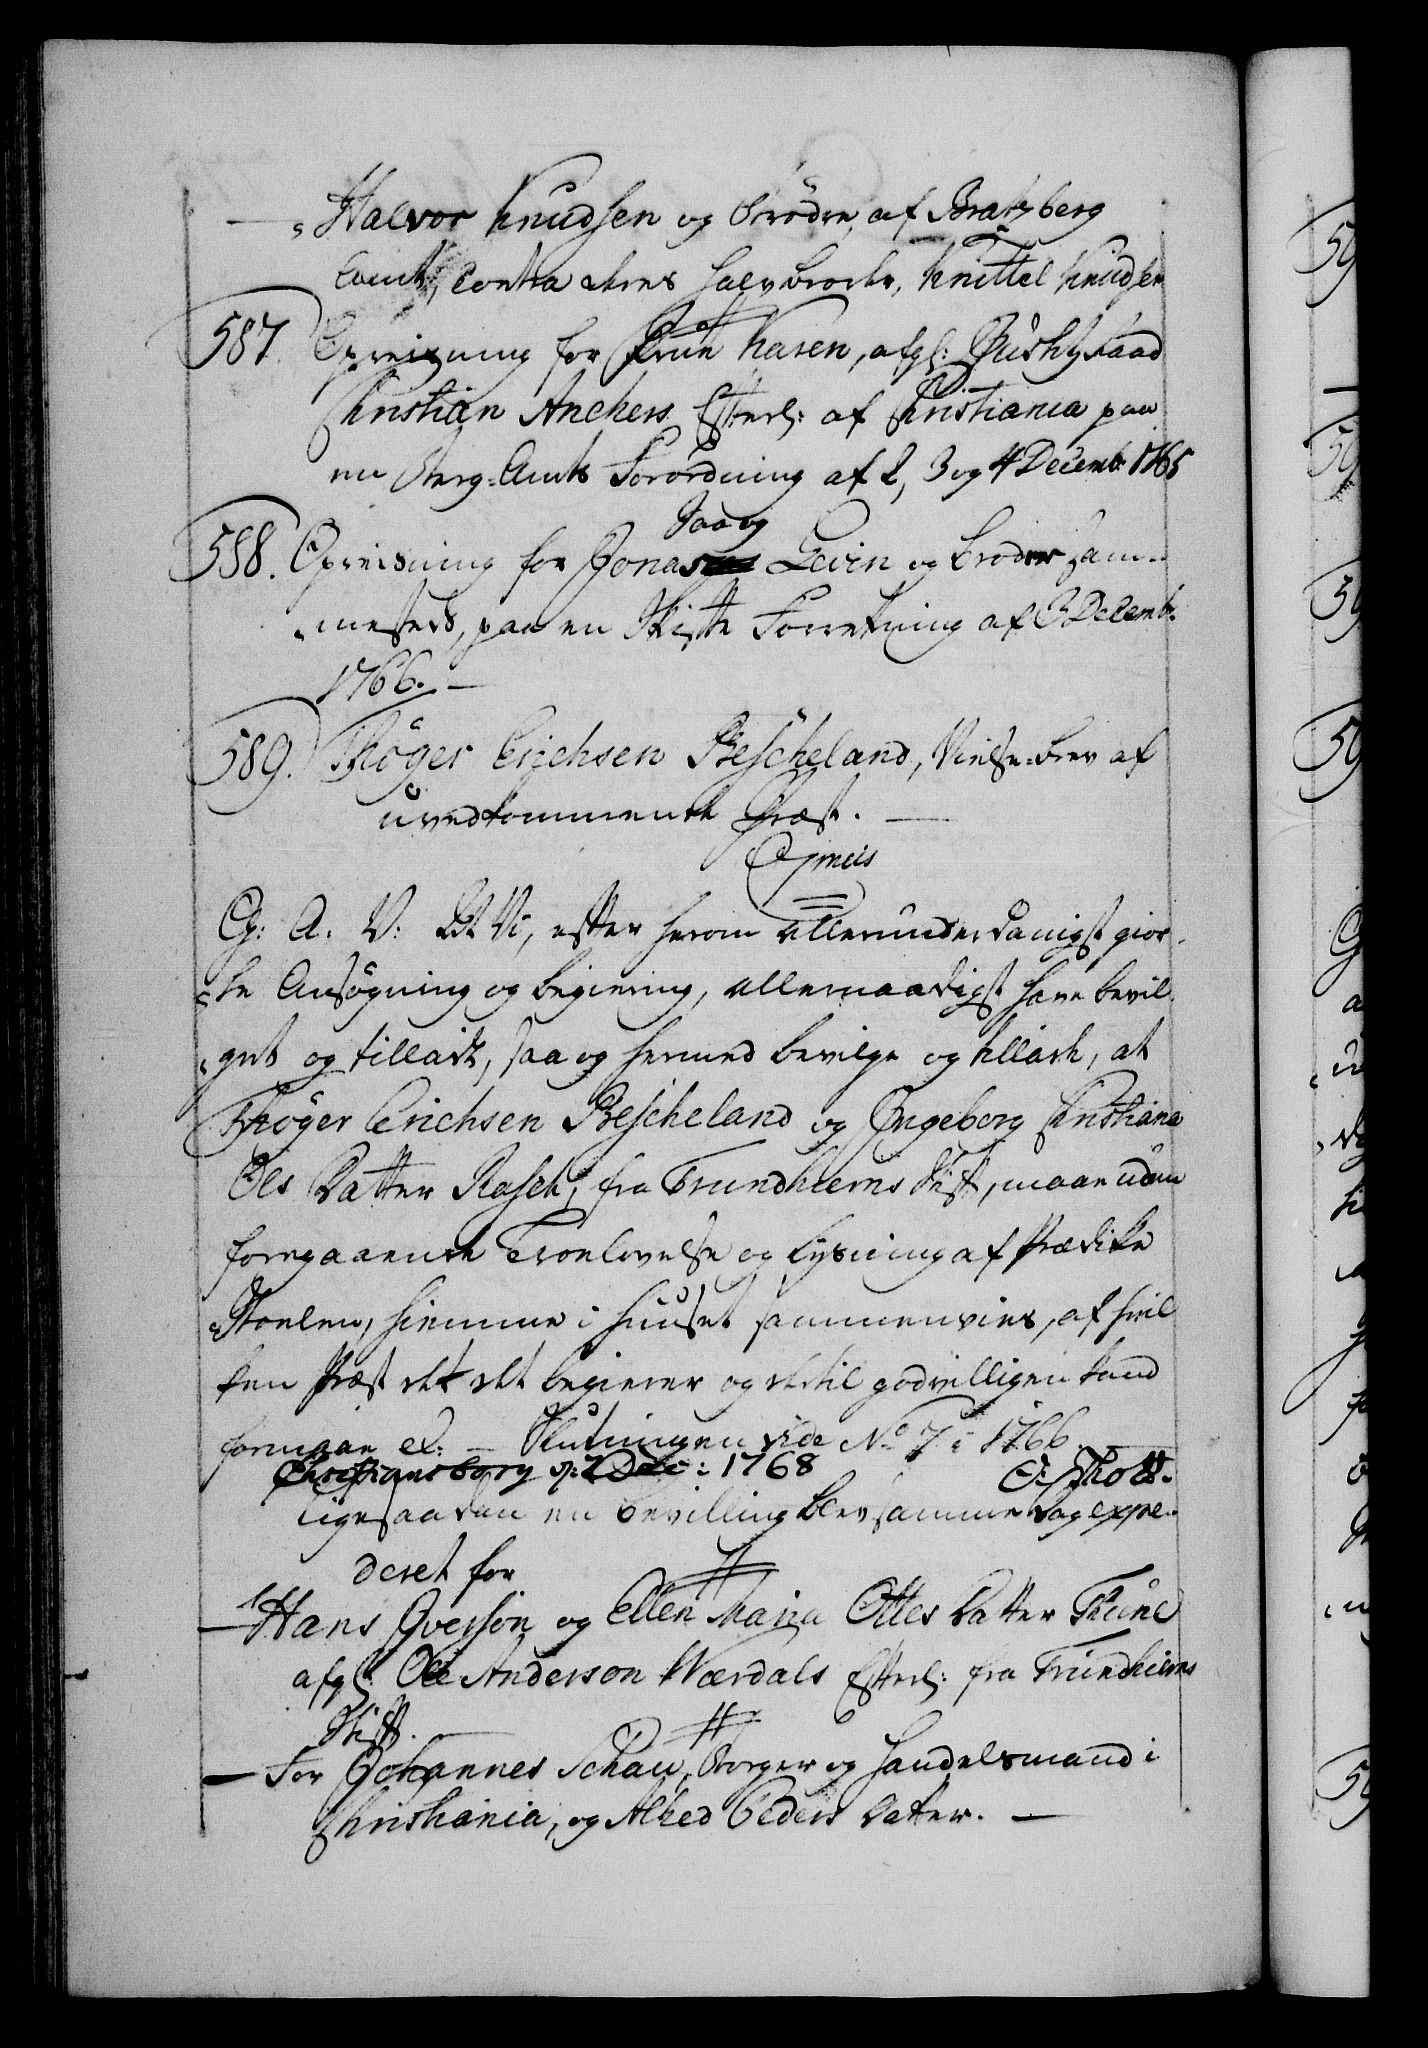 — Halvor Knudsen og Brødre, af Bratzberg
Amt, Contra deres halvbroder, Kittel Knudsen
587. Opreisning for Frue Karen, afgl: Justitzraad
Christian Anchers Efterl: af Christiania paa
en Berg-Amts Forordning af 2, 3 og 4 Decemb: 1765
588. Opreisning for Jonas Isaag Levin og broder sam-
mesteds, paa en Skifte Forretning af 3 Decemb:
1766. —
589. Thöger Erichsen Bescheland, Vielse-brev af
uvedkommende Præst. —
Copieis
C: A: V: At Vi, efter herom allerunderdanigst gior-
de Ansøgning og begiering, allernaadigst have bevil-
get og tilladt, saa og hermed bevilge og tillade, at
Thöger Erichsen Bescheland og Ingeborg Christiana
Ols Datter Rasch, fra Trundhiems Stift, maae uden
foregaaende Troelovelse og Lysning af Prædike
Stoelen, hiemme i Huuset sammenvies, af hvil
ken Præst de det begierer og dertil godvilligen kand
formaae et: — Slutningen vide No 7 i 1766.
Christiansborg d: 2 Dec: 1768 O: Thott.
Ligesaadan en bevilling blev samme Dag expe-
deret for
— Hans Iversön og Ellen Maria Ottes Datter Thüne
afgl: Ole Anderson Værdals Efterl: fra Trundhiems
Stift.
— For Johannes Schau, Borger og Handelsmand i
Christiania, og Alhed Peders Datter. —